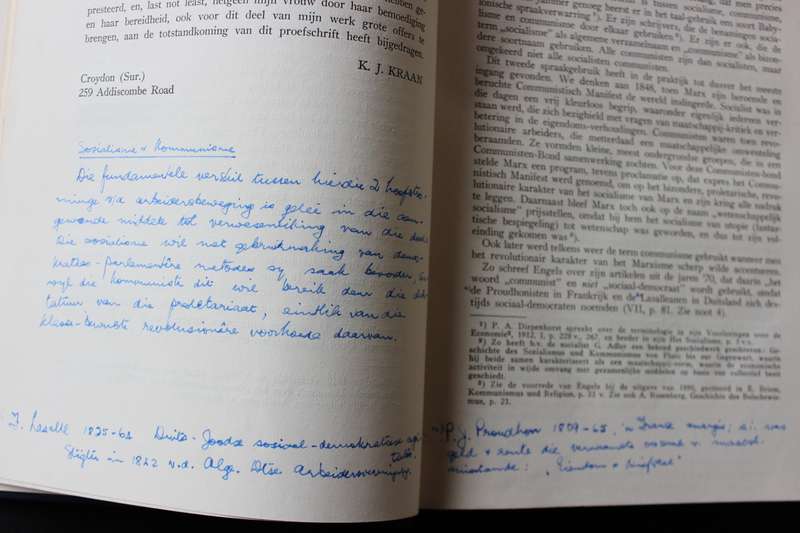 presteerd, en, last not least, hetgeen mijn vrouw door haar bemoediging
en haar bereidheid, ook voor dit deel van mijn werk grote offers te
brengen, aan de totstandkoming van dit proefschrift heeft bijgedragen.
K. J. KRAAN
Croydon (Sur.)
259 Addiscombe Road
Sosialisme & Kommunisme
Die fundamentele verskil tussen hierdie 2 hoofstro-
minge v/d arbeidersbeweging is geleë in die aan-
gewende middele tot verwesenliking van die doel.
Die sosialisme wil met gebruikmaking van demo-
kraties-parlementêre metodes sy saak bevorder,
wyl die kommuniste dit wil bereik deur die dik-
tatuur van die proletariaat, eintlik van die
klasse-bewuste revolusionêre voorhoede daarvan.
F. Lasalle 1825-64 Duits-Joodse sosiaal-demokratiese
Stigter in v.d. Alg. Dtse Arbeidersvereniging.
ionische spraakverwarring ⁵). Er zijn schrijvers, die de benamingen socia-
lisme en communisme door elkaar gebruiken ⁶). Er zijn er ook, die de
term „socialisme" als algemene verzamelnaam en „communisme" als bizon-
dere soortnaam gebruiken. Alle communisten zijn dan socialisten, maar
omgekeerd niet alle socialisten communisten.
Dit tweede spraakgebruik heeft in de praktijk tot dusver het meeste
ingang gevonden. We denken aan 1848, toen Marx zijn beroemde en
beruchte Communistisch Manifest de wereld indringde. Socialist was in
die dagen een vrij kleurloos begrip, waaronder eigenlijk iedereen ver-
staan werd, die zich bezighield met vragen van maatschappij-kritiek en ver-
betering in de eigendoms-verhoudingen. Communisten waren toen revo-
lutionaire arbeiders, die metterdaad een maatschappelijke omwenteling
beraamden. Ze vormden kleine, meest ondergrondse groepen, die in een
Communisten-Bond samenwerking zochten. Voor deze Communisten-bond
stelde Marx een program, tevens proclamatie op, dat expres het Commu-
nistisch Manifest werd genoemd, om op het bizonder, proletarische, revo-
lutionaire karakter van het socialisme van Marx en zijn kring alle nadruk
te leggen. Daarnaast bleef Marx toch ook op de naam „wetenschappelijk
socialisme" prijsstellen, omdat bij hem het socialisme van utopie (fantas-
tische bespiegeling) tot wetenschap was geworden, en dus tot zijn vol-
einding gekomen was ⁷).
Ook later werd telkens weer de term communisme gebruikt wanneer men
het revolutionair karakter van het Marxisme scherp wilde accentueren.
Zo schreef Engels over zijn artikelen uit de jaren '70, dat daarin „het
woord „communist" en niet „sociaal-democraat" wordt gebruikt, omdat
de Proudhonisten in Frankrijk en de Lasalleanen in Duitsland zich des-
tijds sociaal-democraten noemden (VII, p. 81. Zie noot 4).
⁵) P. A. Diepenhorst spreekt over de terminologie in zijn Voorlezingen over de
Economie, 1912, I, p. 228 v., 267, en breder in zijn Het Socialisme, p. 5 v.v.
⁶) Zo heeft b.v. de socialist G. Adler een bekend geschiedwerk geschreven: Ge-
schichte des Sozialismus und Kommunismus von Plato bis zur Gegenwart, waarin
hij beide samen karakteriseert als een maatschappij-vorm, waarin de economische
activiteit in wijde omvang met gezamenlijke middelen op basis van collectief bezit
geschiedt.
⁷) Zie de voorrede van Engels bij de uitgave van 1890, geciteerd in E. Brunn,
Kommunismus und Religion, p. 21 v. Zie ook A. Rosenberg, Geschichte des Bolschewis-
mus, p. 21.
P. J. Proudhon 1809-65, 'n Franse
geld & rente die vernaamste